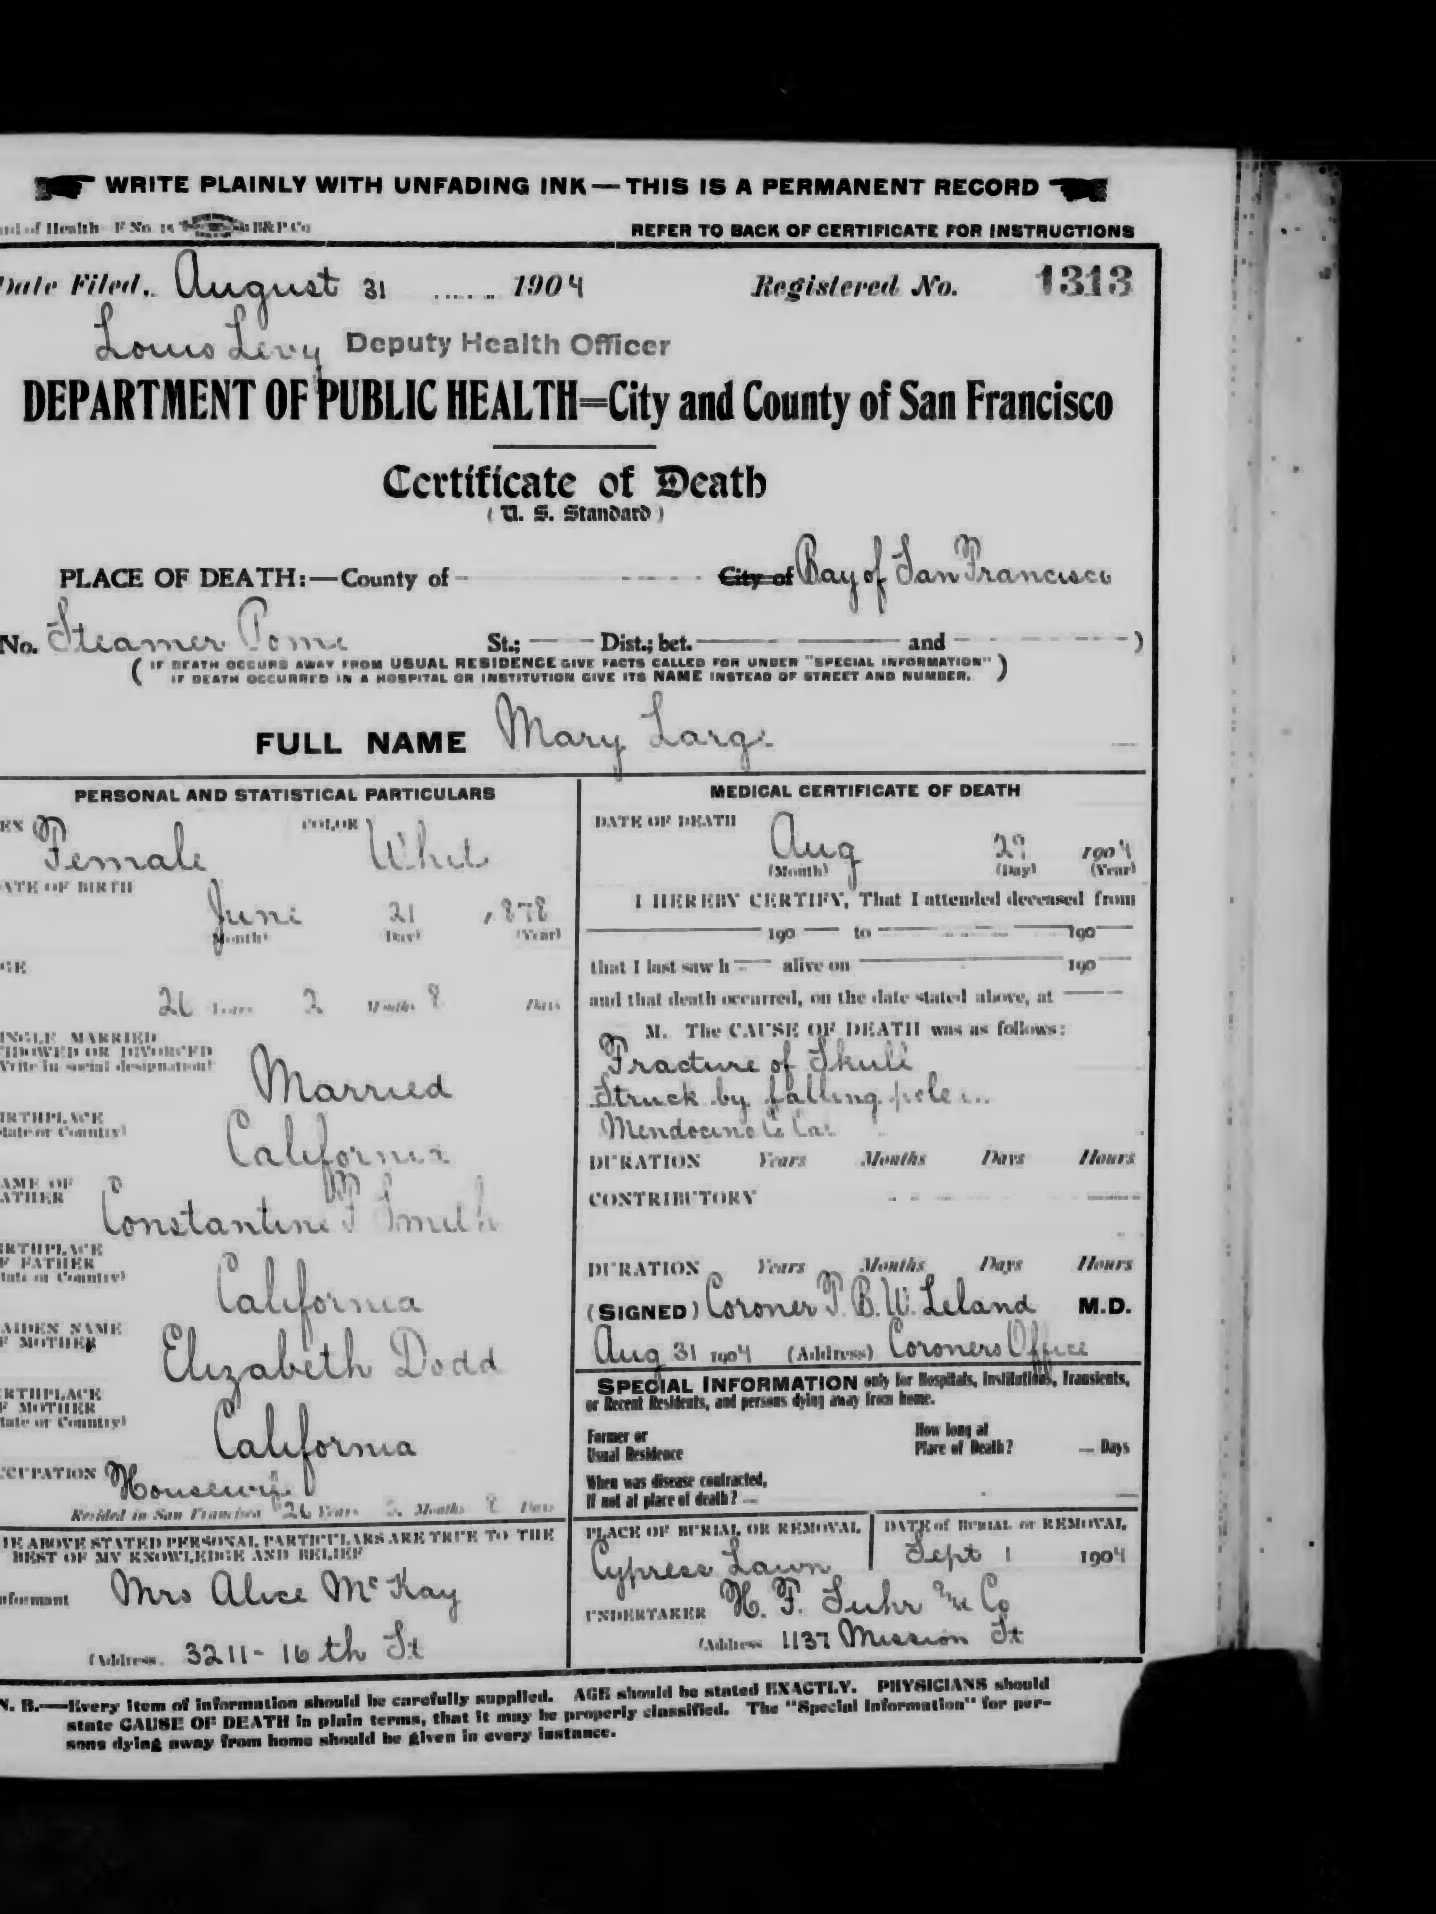 WRITE PLAINLY WITH UNFADING INK—THIS IS A PERMANENT RECORD
of Health F No. 15 B&P Co
REFER TO BACK OF CERTIFICATE FOR INSTRUCTIONS
Date Filed, August 31 1904 Registered No. 1313
Louis Levy Deputy Health Officer
DEPARTMENT OF PUBLIC HEALTH=City and County of San Francisco
Certificate of Death
(U. S. Standard)
PLACE OF DEATH:—County of City of Bay of San Francisco
No. Steamer Pomo St.; Dist.; bet. and )
(IF DEATH OCCURS AWAY FROM USUAL RESIDENCE GIVE FACTS CALLED FOR UNDER "SPECIAL INFORMATION"
IF DEATH OCCURRED IN A HOSPITAL OR INSTITUTION GIVE ITS NAME INSTEAD OF STREET AND NUMBER.)
FULL NAME Mary Large
PERSONAL AND STATISTICAL PARTICULARS
EX Female COLOR White
ATE OF BIRTH
June 21 1878
(Month) (Day) (Year)
GE
26 Years 2 Months 8 Days
INGLE MARRIED
IDOWED OR DIVORCED
Write in social designation)
Married
IRTHPLACE
State or Country)
California
AME OF
ATHER
Constantine F Smith
IRTHPLACE
F FATHER
State or Country)
California
AIDEN NAME
F MOTHER
Elizabeth Dodd
IRTHPLACE
F MOTHER
State or Country)
California
CCUPATION Housewife
Resided in San Francisco 26 Years 2 Months 8 Days
HE ABOVE STATED PERSONAL PARTICULARS ARE TRUE TO THE
BEST OF MY KNOWLEDGE AND BELIEF
nformant Mrs Alice McKay
(Address 3211-16th St
MEDICAL CERTIFICATE OF DEATH
DATE OF DEATH
Aug 29 1904
(Month) (Day) (Year)
I HEREBY CERTIFY, That I attended deceased from
190 to 190
that I last saw h alive on 190
and that death occurred, on the date stated above, at
M. The CAUSE OF DEATH was as follows:
Fracture of Skull
Struck by falling pole in
Mendocino Co Cal
DURATION Years Months Days Hours
CONTRIBUTORY
DURATION Years Months Days Hours
(SIGNED) Coroner T. B. W. Leland M.D.
Aug 31 1904 (Address) Coroners Office
SPECIAL INFORMATION only for Hospitals, Institutions, Transients,
or Recent Residents, and persons dying away from home.
Former or
Usual Residence
How long at
Place of Death? Days
When was disease contracted,
If not at place of death?
PLACE OF BURIAL OR REMOVAL
Cypress Lawn
DATE of BURIAL or REMOVAL
Sept 1 1904
UNDERTAKER H. F. Suhr and Co
(Address 1137 Mission St
N. B.—Every item of information should be carefully supplied. AGE should be stated EXACTLY. PHYSICIANS should
state CAUSE OF DEATH in plain terms, that it may be properly classified. The "Special Information" for per-
sons dying away from home should be given in every instance.